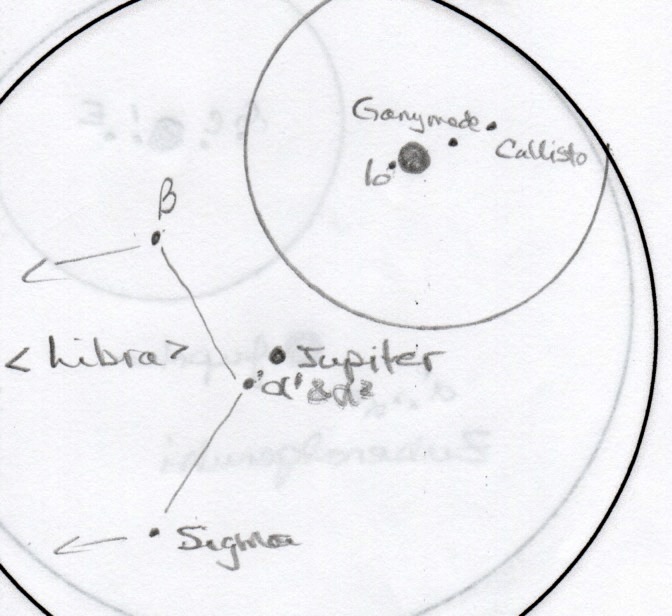 Ganymede
Callisto
Io
β
<Libra>
Jupiter
α¹ & α²
Sigma